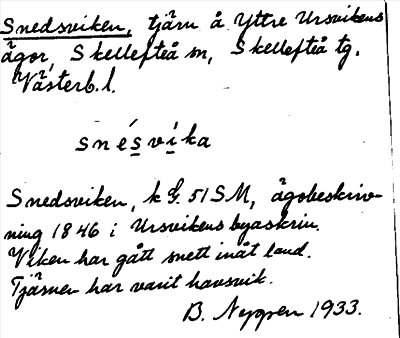 Snedsviken, tjärn å Yttre Ursvikens
ägor, Skellefteå sn, Skellefteå tg.
Västerb. l.
snésvika
Snedsviken, k 51 SM, ägobeskriv-
ning 1846 i Ursvikens byaskrin.
Viken har gått snett inåt land.
Tjärnen har varit havsvik.
B. Nyppen 1933.